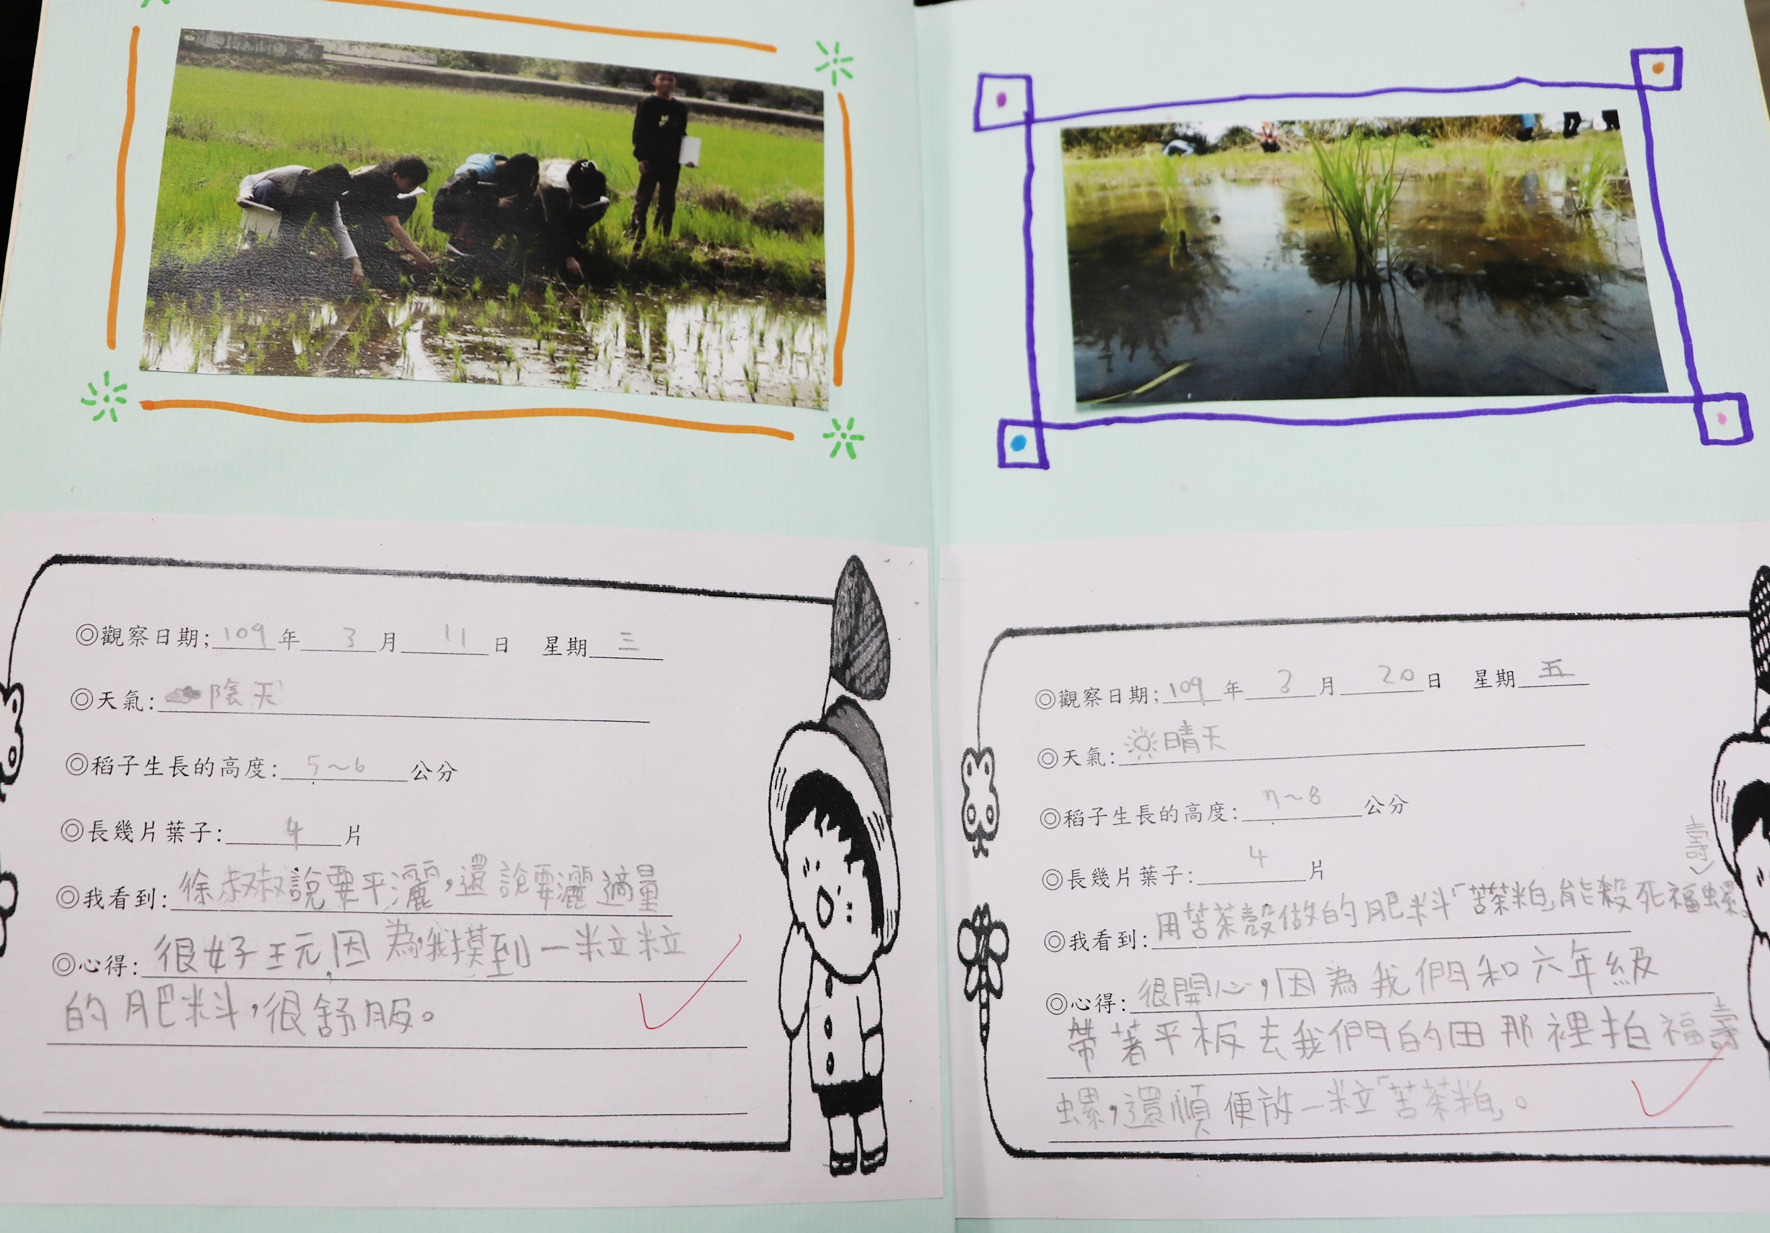 ◎觀察日期;109年3月11日 星期三
◎天氣:陰天
◎稻子生長的高度:5~6公分
◎長幾片葉子:4片
◎我看到:徐叔叔說要平灑,還說要灑適量
◎心得:很好玩,因為我摸到一粒粒
的肥料,很舒服。
◎觀察日期;109年3月20日 星期五
◎天氣:晴天
◎稻子生長的高度:7~8公分
◎長幾片葉子:4片
◎我看到:用苦茶殼做的肥料「苦茶粕」能殺死福壽螺
◎心得:很開心,因為我們和六年級
帶著平板去我們的田那裡拍福壽
螺,還順便放一粒「苦茶粕」。